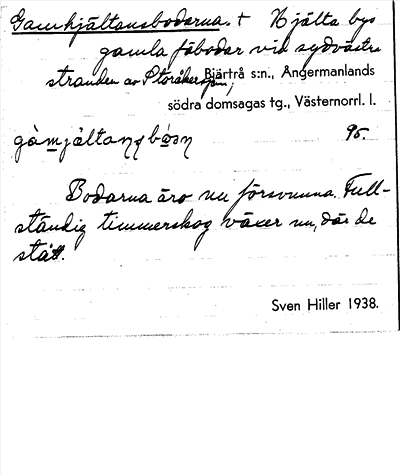 Gamhjältansbodarna. + Hjälta bys
gamla fäbodar vid sydvästra
stranden av Storåkersjön; Bjärtrå s:n., Ångermanlands
södra domsagas tg., Västernorrl. l.
95.
Bodarna äro nu försvunna. Full-
ständig timmerskog växer nu, där de
stått.
Sven Hiller 1938.